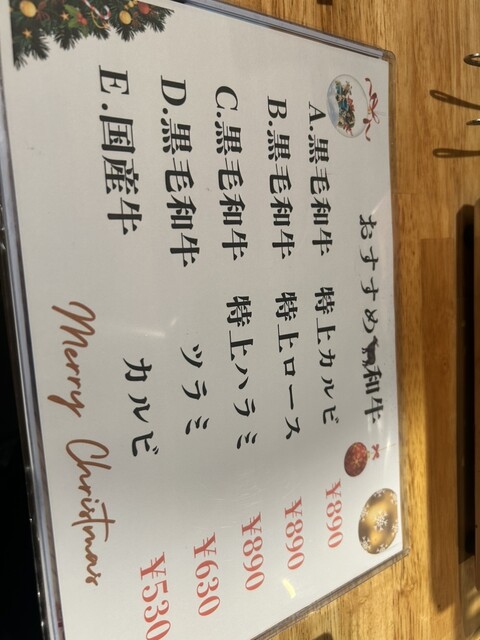 おすすめ和牛
A.黒毛和牛 特上カルビ ¥890
B.黒毛和牛 特上ロース ¥890
C.黒毛和牛 特上ハラミ ¥890
D.黒毛和牛 ツラミ ¥630
E.国産牛 カルビ ¥530
Merry Christmas